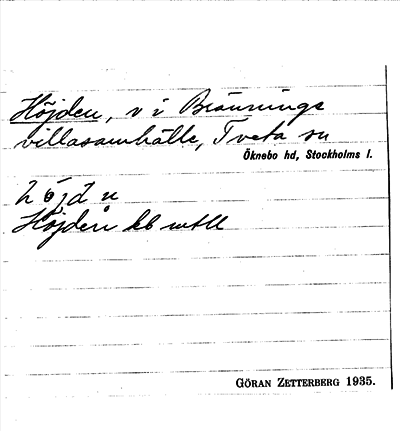 Höjden, v i Bränninge
villasamhälle, Tveta sn
Öknebo hd, Stockholms l.
höjd n
Höjden
GÖRAN ZETTERBERG 1935.